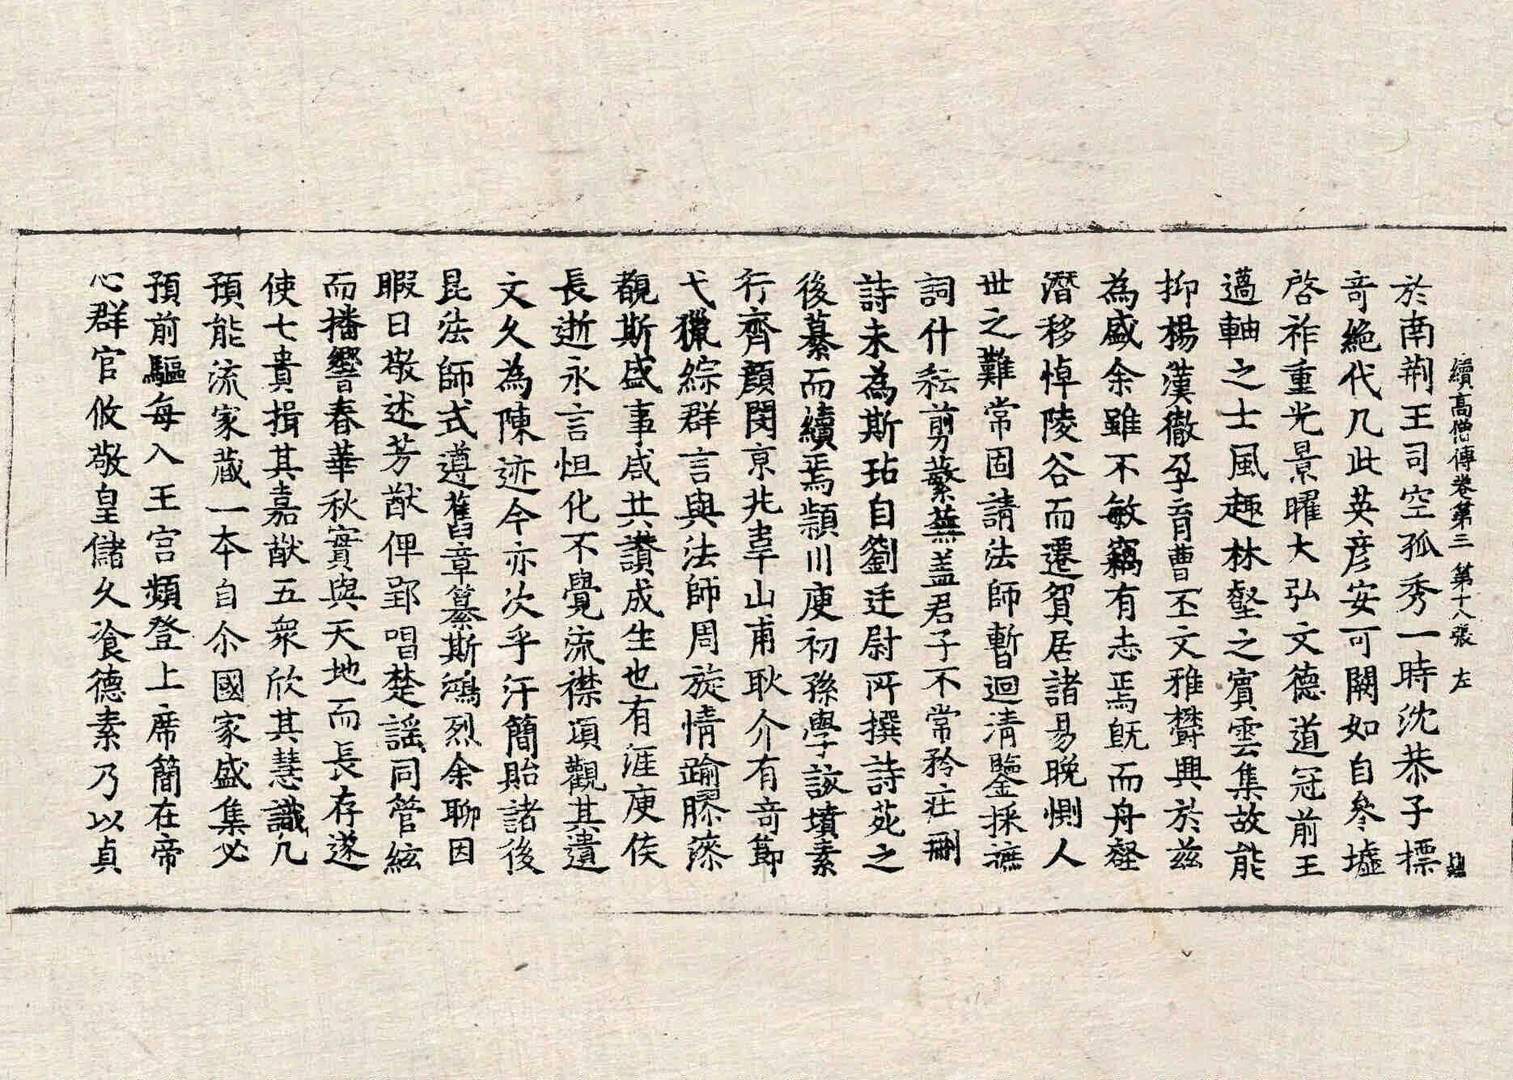 續高僧傳卷第三 第十八張 左
於南荆王司空孤秀一時沈恭子標
竒絶代凡此英彦安可闕如自參墟
啓祚重光景曜大弘文德道冠前王
邁軸之士風趣林壑之賓雲集故能
抑楊漢徹孕育曹丕文雅欝興於兹
為盛余雖不敏竊有志焉旣而舟壑
潛移悼陵谷而遷貿居諸易晩惻人
世之難常固請法師暫迴清鑒採摭
詞什耘剪蘩蕪盖君子不常矜莊刪
詩未為斯玷自劉廷尉所撰詩苑之
後纂而續焉頴川庾初孫學該墳素
行齊顔閔京兆韋山甫耿介有竒節
弋獵綜群言與法師周旋情踰膠漆
覩斯盛事咸共讚成生也有涯庾侯
長逝永言怛化不覺流襟頃觀其遺
文久為陳迹今亦次乎汗簡貽諸後
昆法師式遵舊章纂斯鴻烈余聊因
暇日敬述芳猷俾郢唱楚謡同管絃
而播響春華秋實與天地而長存遂
使七貴揖其嘉猷五衆欣其慧識凡
預能流家藏一本自尒國家盛集必
預前驅每入王宫頻登上席簡在帝
心群官攸敬皇儲久飡德素乃以貞